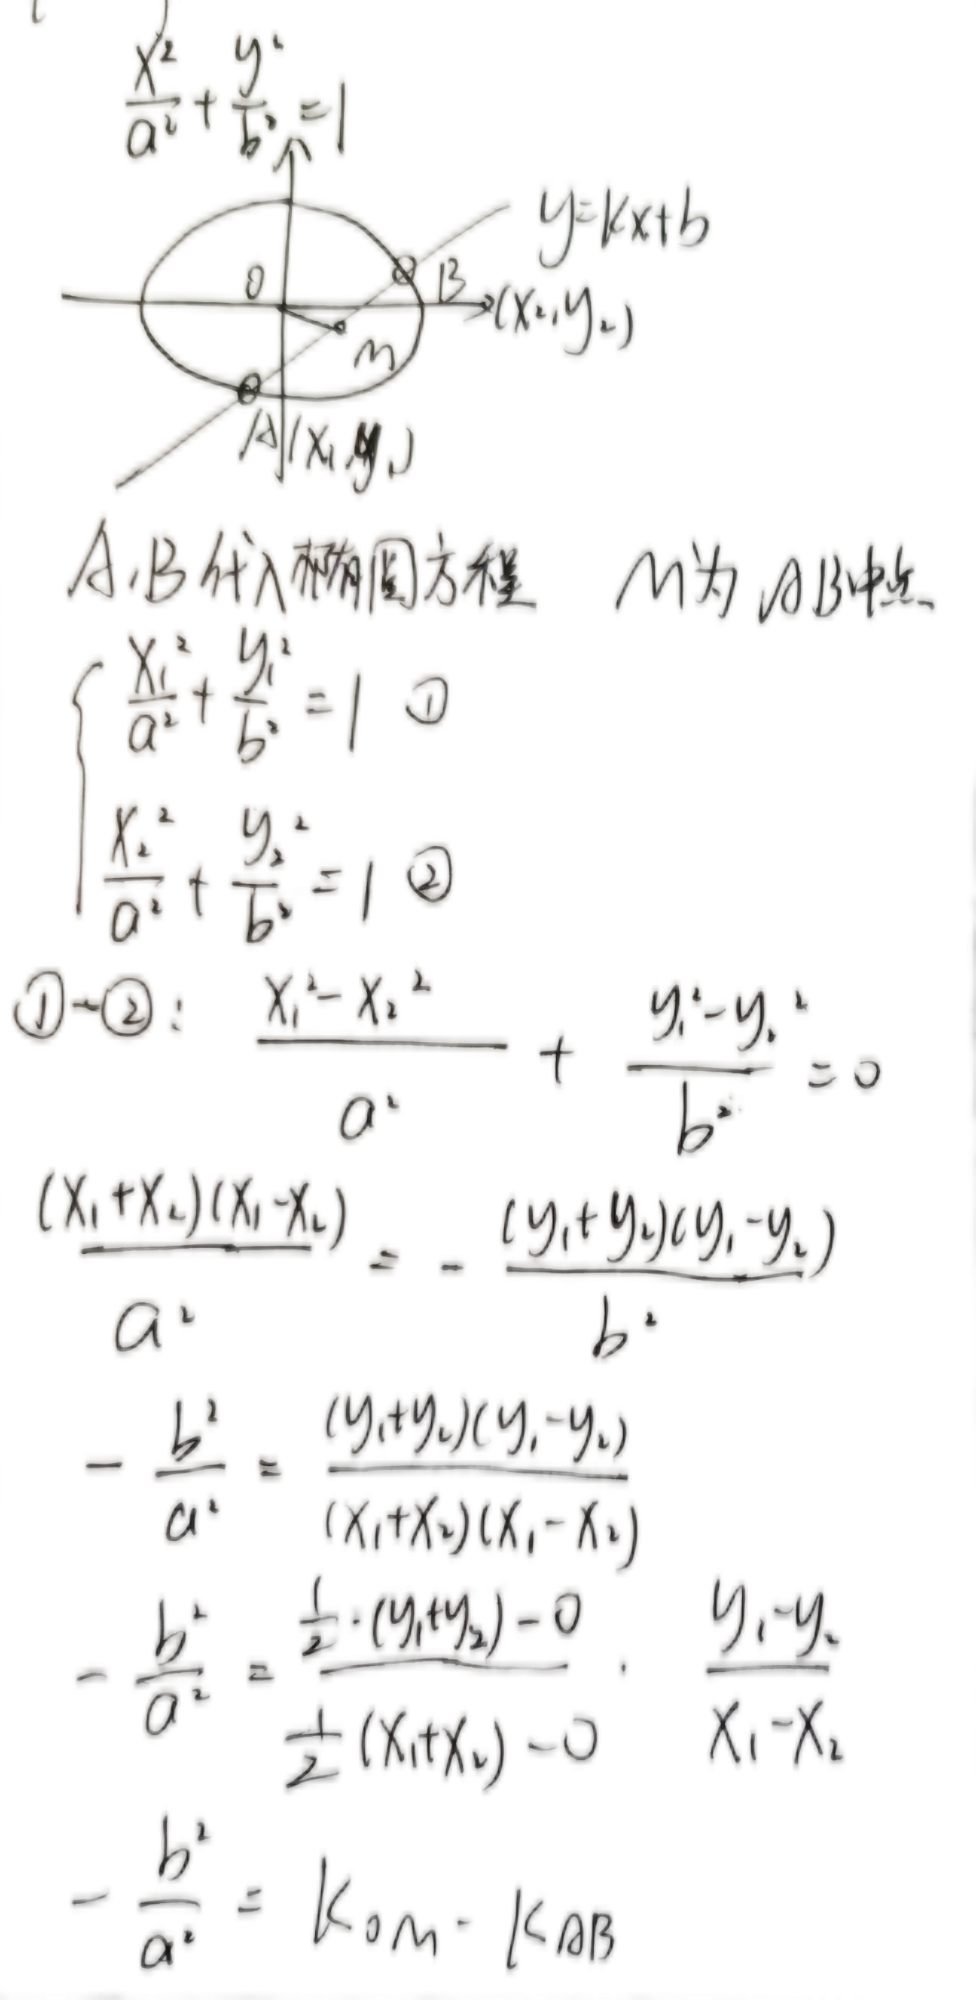 x²/a² + y²/b² = 1
y=kx+b
O
B
(x₂,y₂)
M
A(x₁,y₁)
A,B代入椭圆方程 M为AB中点
x₁²/a² + y₁²/b² = 1 ①
x₂²/a² + y₂²/b² = 1 ②
①-②: (x₁²-x₂²)/a² + (y₁²-y₂²)/b² = 0
(x₁+x₂)(x₁-x₂)/a² = - (y₁+y₂)(y₁-y₂)/b²
- b²/a² = (y₁+y₂)(y₁-y₂)/(x₁+x₂)(x₁-x₂)
- b²/a² = (1/2·(y₁+y₂)-0)/(1/2(x₁+x₂)-0) · (y₁-y₂)/(x₁-x₂)
- b²/a² = K_OM · K_AB